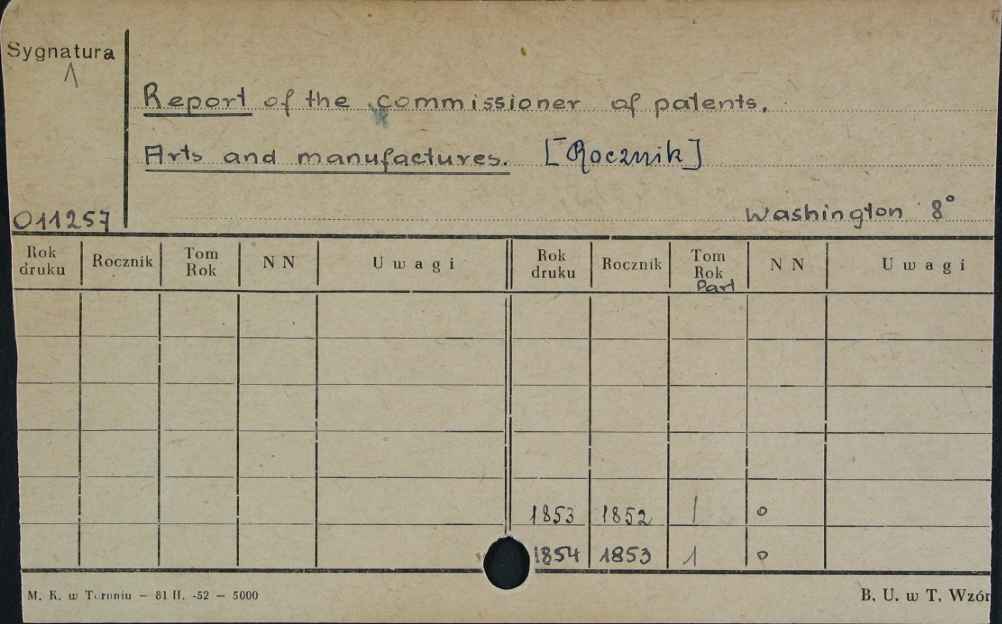 Sygnatura
Report of the commissioner of patents.
Arts and manufactures. [Rocznik]
011257
Washington 8°
Rok druku Rocznik Tom Rok NN Uwagi Rok druku Rocznik Tom Rok Part NN Uwagi
1853 1852 1 o
1854 1853 1 o
M. K. w Toruniu — 81 II. -52 — 5000 B. U. w T. Wzór